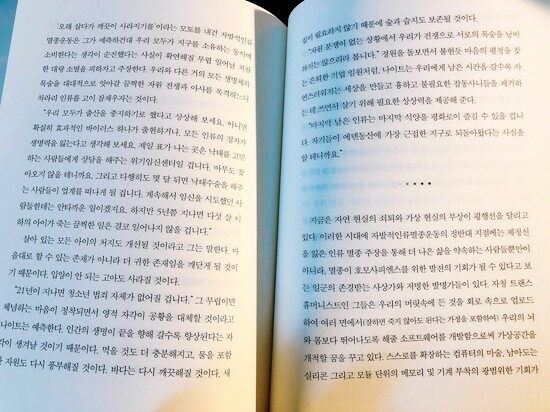 '오래 살다가 깨끗이 사라지기를'이라는 모토를 내건 자발적인류
멸종운동은 그가 예측하건대 우리 모두가 지구를 소유하는 동시에
소비한다는 생각이 순진했다는 사실이 확연해질 무렵 일어날 처참
한 대량 소멸을 피하자고 주장한다. 우리와 다른 거의 모든 생명체의
목숨을 대대적으로 앗아갈 끔찍한 자원 전쟁과 아사를 목격하느니
차라리 인류를 고이 잠재우자는 것이다.
"우리 모두가 출산을 중지하기로 했다고 상상해 보세요. 아니면
확실히 효과적인 바이러스 하나가 출현하거나, 모든 인류의 정자가
생명력을 잃는다고 생각해 보세요. 제일 표가 나는 곳은 낙태를 고민
하는 사람들에게 상담을 해주는 위기임신센터일 겁니다. 아무도 찾
아오지 않을 테니까요. 그리고 다행히도 몇 달 뒤면 낙태수술을 해주
는 사람들이 업계를 떠나게 될 겁니다. 계속해서 임신을 시도했던 사
람들한테는 안타까운 일이겠지요. 하지만 5년쯤 지나면 다섯 살 이
하의 아이가 죽는 끔찍한 일은 결코 일어나지 않을 겁니다."
살아 있는 모든 아이의 처지도 개선될 것이라고 그는 말한다. 마
음대로 할 수 있는 존재가 아니라 더 귀한 존재임을 깨닫게 될 것이
기 때문이다. 입양이 안 되는 고아도 사라질 것이다.
"21년이 지나면 청소년 범죄 자체가 없어질 겁니다." 그 무렵이면
체념하는 마음이 정착되면서 영적 자각이 공황을 대체할 것이라고
나이트는 예측한다. 인간의 생명이 끝을 향해 갈수록 향상된다는 자
각이 생겨날 것이기 때문이다. 먹을 것도 더 충분해지고, 물을 포함
한 자원도 다시 풍부해질 것이다. 바다는 다시 깨끗해질 것이다. 새
집이 필요하지 않기 때문에 숲과 습지도 보존될 것이다.
"자원 분쟁이 없는 상황에서 우리가 전쟁으로 서로의 목숨을 낭비
하지는 않으리라 봅니다." 정원을 돌보면서 불현듯 마음의 평정을 찾
는 은퇴한 기업 임원처럼, 나이트는 우리에게 남은 시간을 갈수록 자
연스러워지는 세상을 만들고 흉하고 불필요한 잡동사니들을 제거하
는 데 쓰면서 살기 위해 필요한 상상력을 제공해 준다.
"마지막 남은 인류는 마지막 석양을 평화로이 즐길 수 있을 겁니
다. 자기들이 에덴동산에 가장 근접한 지구로 되돌아왔다는 사실을
알 테니까요."
• • • •
지금은 자연 현실의 쇠퇴와 가상 현실의 부상이 평행선을 달리고
있다. 이러한 시대에 자발적인류멸종운동의 정반대 지점에는 제정신
을 잃은 인류 멸종 주장을 통해 더 나은 삶을 약속하는 사람들뿐만이
아니라, 멸종이 호모사피엔스를 위한 발전의 기회가 될 수 있다고 보
는 일군의 존경받는 사상가와 저명한 발명가들이 있다. 자칭 트랜스
휴머니스트인 그들은 우리의 머릿속에 든 것을 회로 속으로 업로드
하여 여러 면에서(잘하면 죽지 않아도 된다는 가정을 포함하여) 우리의 뇌
와 몸보다 뛰어나도록 해줄 소프트웨어를 개발함으로써 가상공간을
개척할 꿈을 꾸고 있다. 스스로를 확장하는 컴퓨터의 마술, 남아도는
실리콘 그리고 모듈 단위의 메모리 및 기계 부착의 광범위한 기회가